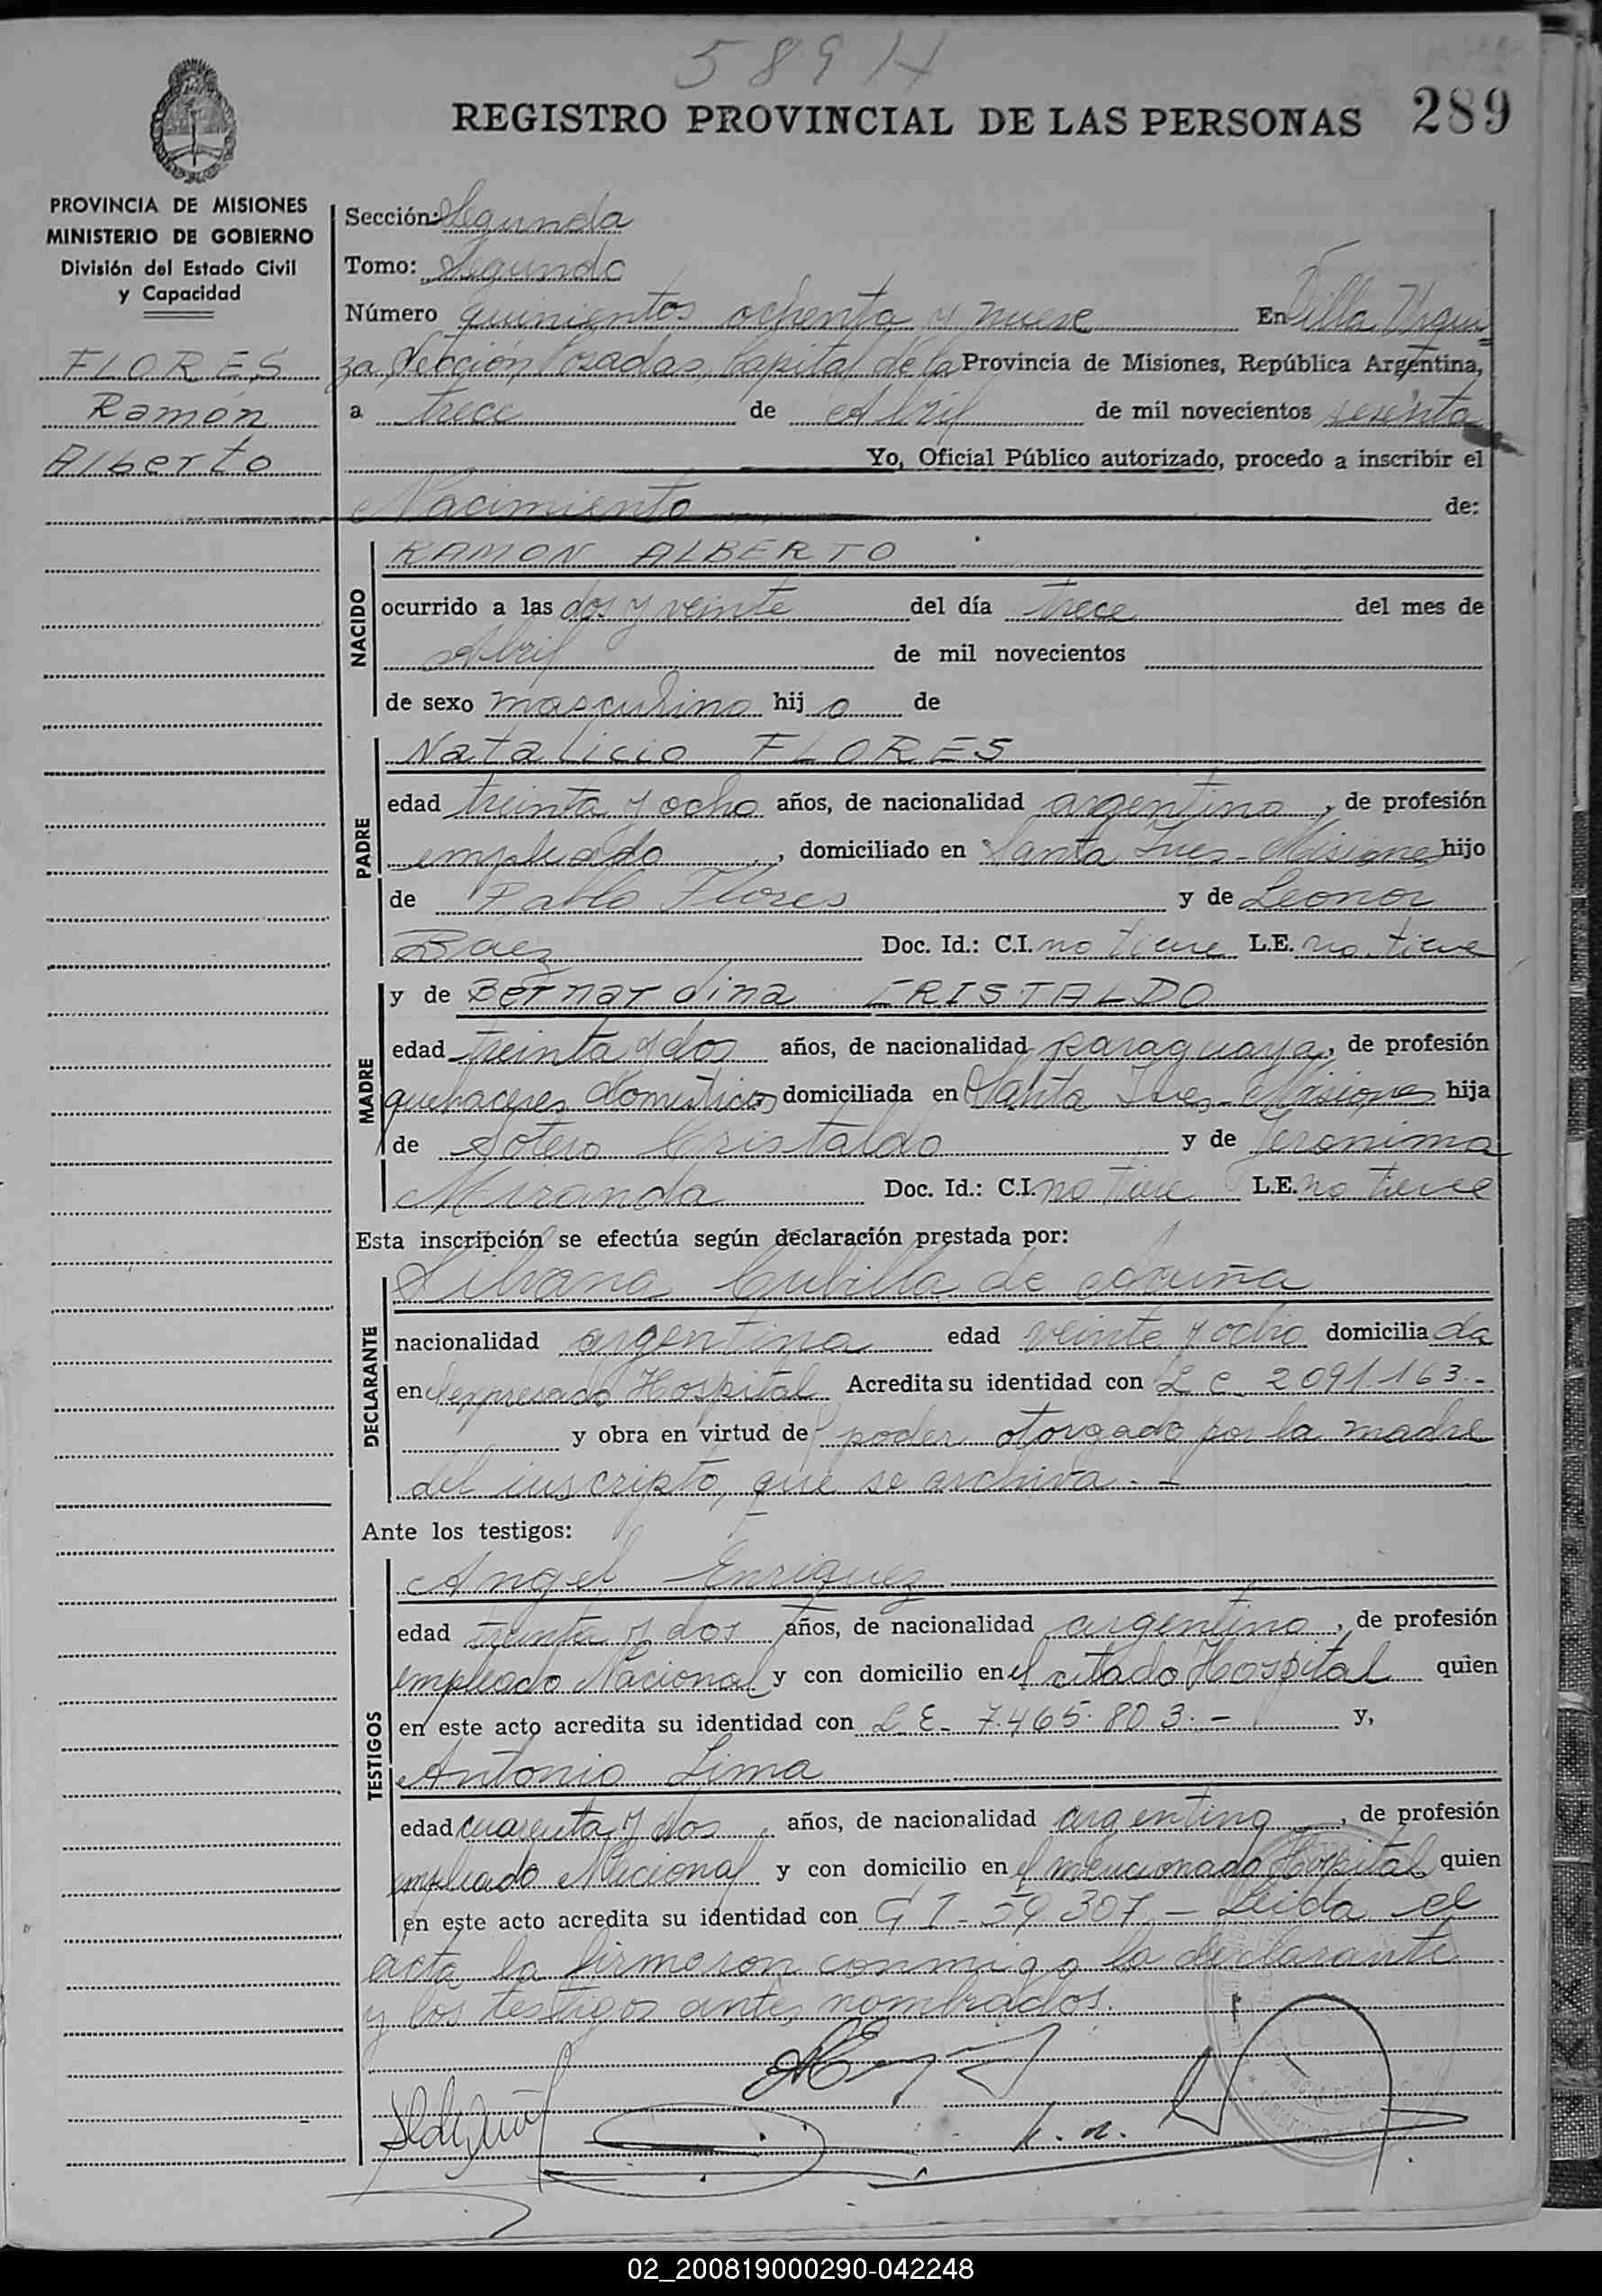 589 H
REGISTRO PROVINCIAL DE LAS PERSONAS 289
PROVINCIA DE MISIONES
MINISTERIO DE GOBIERNO
División del Estado Civil
y Capacidad
FLORES
Ramón
Alberto
Sección: Segunda
Tomo: Segundo
Número quinientos ochenta y nueve En Villa Urqui
za, Sección Posadas, Capital de la Provincia de Misiones, República Argentina,
a trece de Abril de mil novecientos sesenta
Yo, Oficial Público autorizado, procedo a inscribir el
Nacimiento de:
NACIDO
RAMON ALBERTO
ocurrido a las dos y veinte del día trece del mes de
Abril de mil novecientos
de sexo masculino hij o de
PADRE
Natalicio FLORES
edad treinta y ocho años, de nacionalidad argentino, de profesión
empleado, domiciliado en Santa Ines - Misiones hijo
de Pablo Flores y de Leonor
Baez Doc. Id.: C.I. no tiene L.E. no tiene
MADRE
y de Bernardina CRISTALDO
edad treinta y dos años, de nacionalidad paraguaya, de profesión
quehaceres domesticos domiciliada en Santa Ines - Misiones hija
de Sotero Cristaldo y de Jeronima
Miranda Doc. Id.: C.I. no tiene L.E. no tiene
Esta inscripción se efectúa según declaración prestada por:
DECLARANTE
Silvana Cubilla de Acuña
nacionalidad argentina edad veinte y ocho domicilia da
en el expresado Hospital Acredita su identidad con L C 2091.163.-
y obra en virtud del poder otorgado por la madre
del inscripto, que se archiva.-
Ante los testigos:
TESTIGOS
Angel Enriquez
edad treinta y dos años, de nacionalidad argentino, de profesión
empleado Nacional y con domicilio en el citado Hospital quien
en este acto acredita su identidad con L E. 7.465.803.- y,
Antonio Lima
edad cuarenta y dos años, de nacionalidad argentino, de profesión
empleado Nacional y con domicilio en el mencionado Hospital quien
en este acto acredita su identidad con C I - 59.307 - Leida el
acta la firmaron conmigo la declarante
y los testigos antes nombrados.
02_200819000290-042248